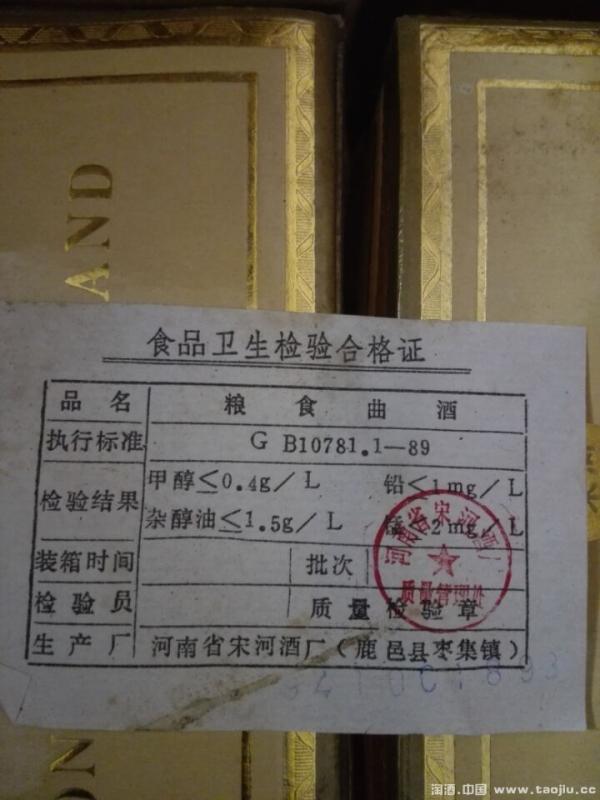 AND
食品卫生检验合格证
品名 粮食曲酒
执行标准 GB10781.1—89
检验结果 甲醇≤0.4g/L 铅≤1mg/L
杂醇油≤1.5g/L 锰≤2mg/L
装箱时间 批次
检验员 质量检验章
生产厂 河南省宋河酒厂(鹿邑县枣集镇)
河南省宋河酒厂
质量管理处
ON
淘酒.中国 www.taojiu.cc